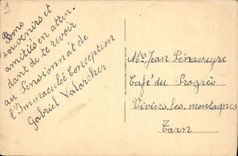 Bons
souvenirs et
amitiés en atten-
dant de te revoir
au Pensionnat de
l'Immaculée Conception
Gabriel
Mr Jean
Café du Progrès
Viviers les montagnes
Tarn